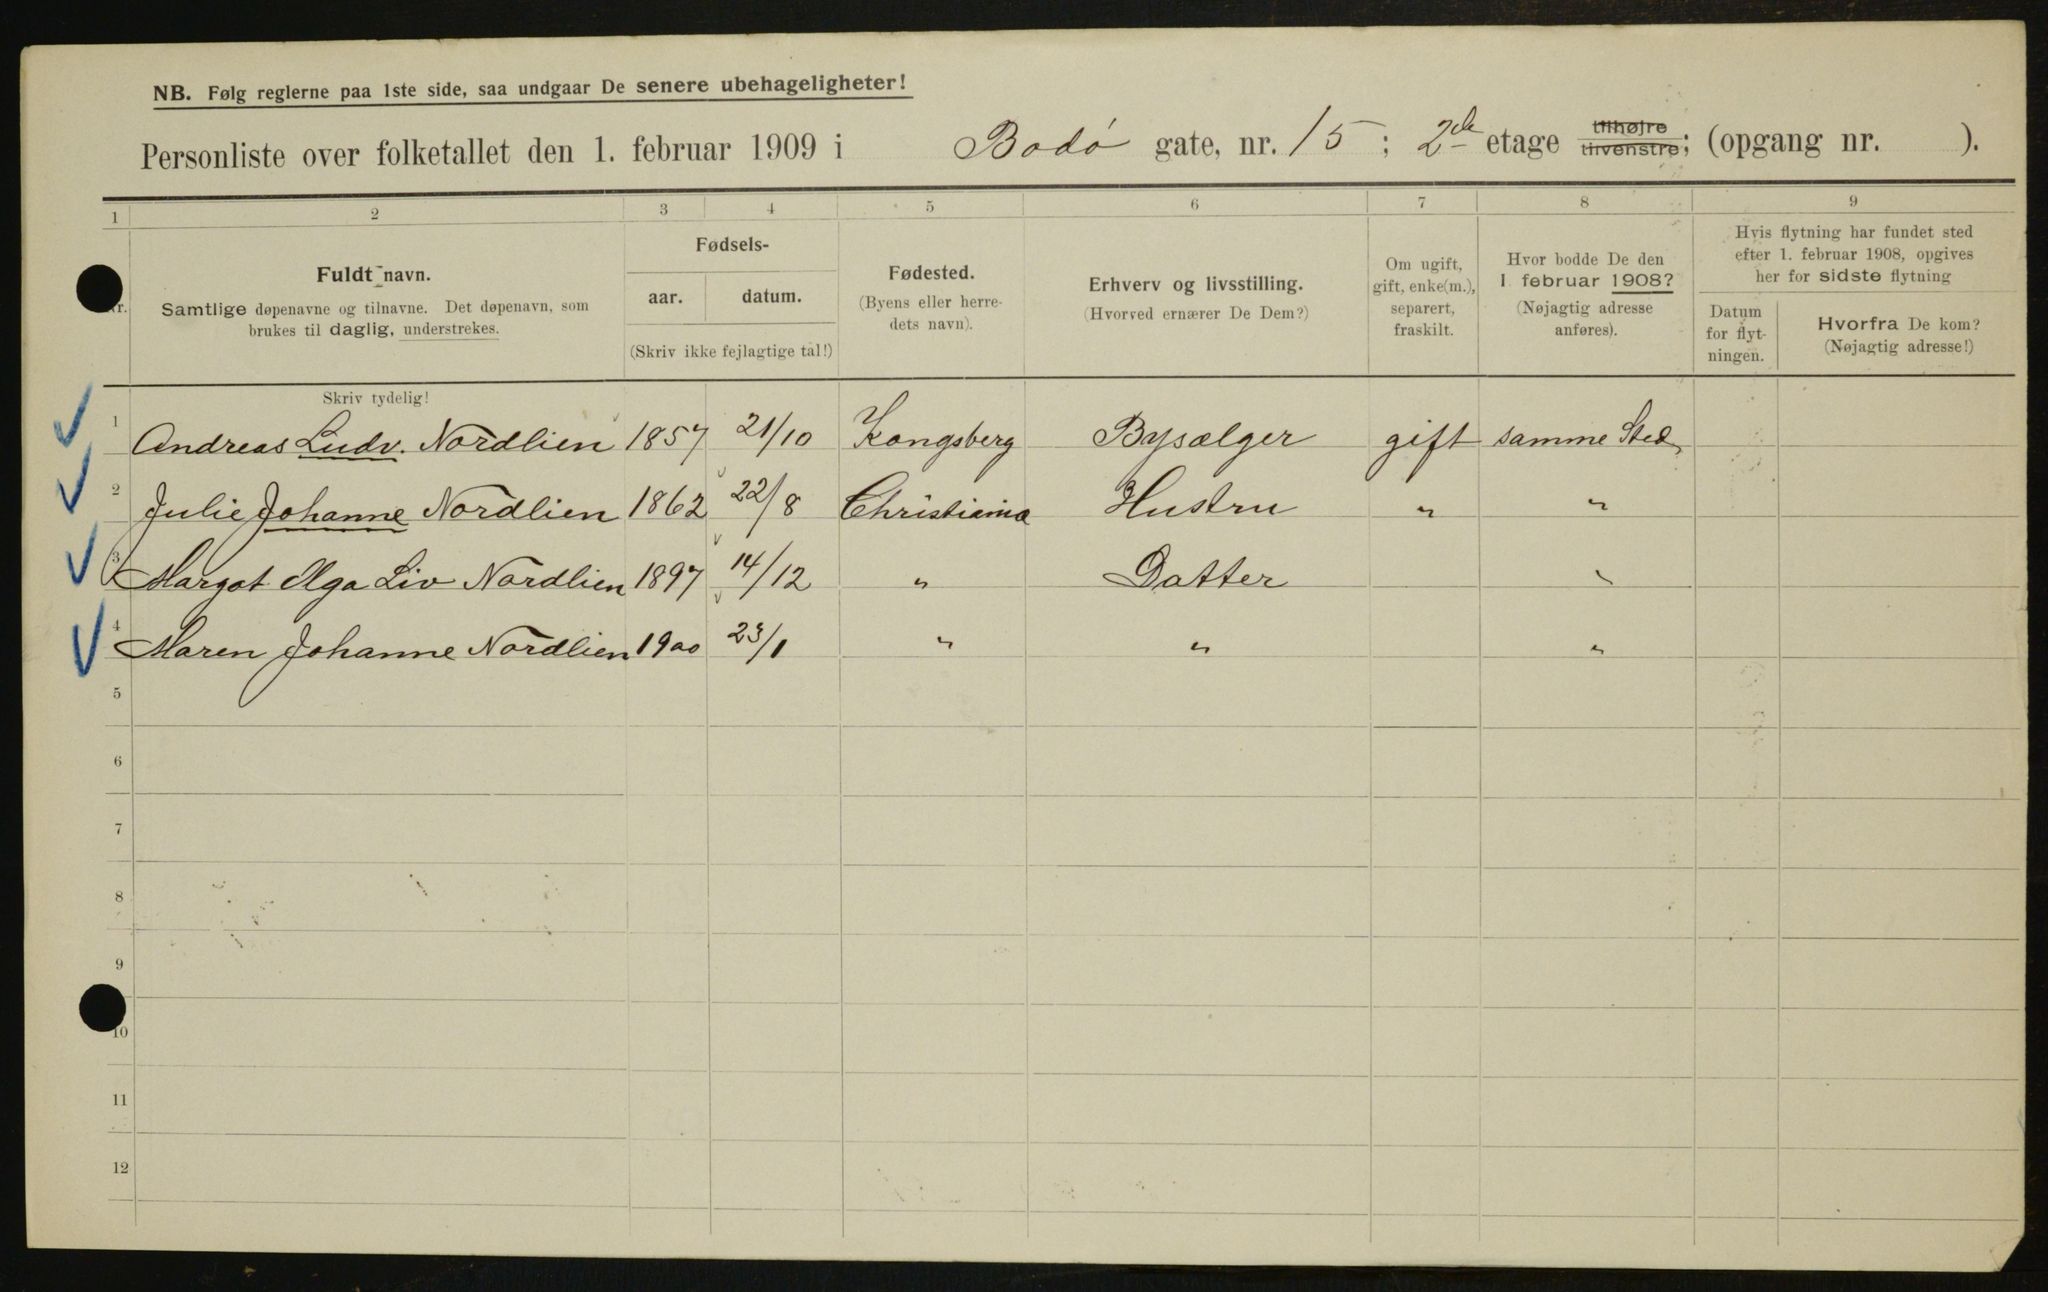 NB. Følg reglerne paa 1ste side, saa undgaar De senere ubehageligheter!
Personliste over folketallet den 1. februar 1909 i Bodø gate, nr. 15; 2de etage tilhøjre tilvenstre; (opgang nr. ).
1 2 3 4 5 6 7 8 9
Nr.
Fuldt navn.
Samtlige døpenavne og tilnavne. Det døpenavn, som
brukes til daglig, understrekes.
Fødsels-
aar. datum.
(Skriv ikke fejlagtige tal!)
Fødested.
(Byens eller herre-
dets navn).
Erhverv og livsstilling.
(Hvorved ernærer De Dem?)
Om ugift,
gift, enke(m.),
separert,
fraskilt.
Hvor bodde De den
1. februar 1908?
(Nøjagtig adresse
anføres).
Hvis flytning har fundet sted
efter 1. februar 1908, opgives
her for sidste flytning
Datum
for flyt-
ningen.
Hvorfra De kom?
(Nøjagtig adresse!)
Skriv tydelig!
1 Andreas Ludv. Nordlien 1857 21/10 Kongsberg Bysælger gift samme Sted
2 Julie Johanne Nordlien 1862 22/8 Christiania Hustru " "
3 Margot Olga Liv Nordlien 1897 14/12 " Datter "
4 Maren Johanne Nordlien 1900 23/1 " " "
5
6
7
8
9
10
11
12